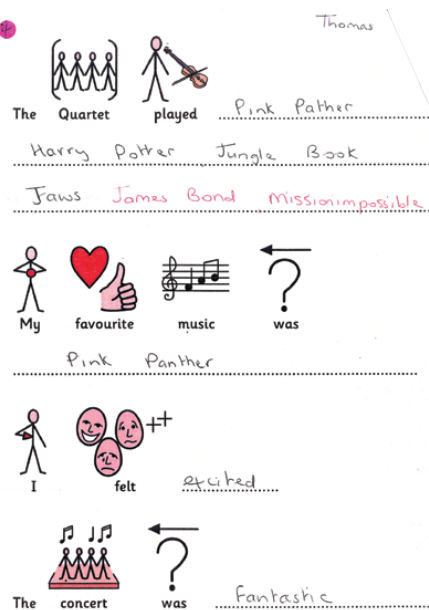 Thomas
The Quartet played Pink Pather
Harry Potter Jungle Book
Jaws James Bond Missionimpossible
My favourite music was
Pink Panther
I felt excited
The concert was Fantastic